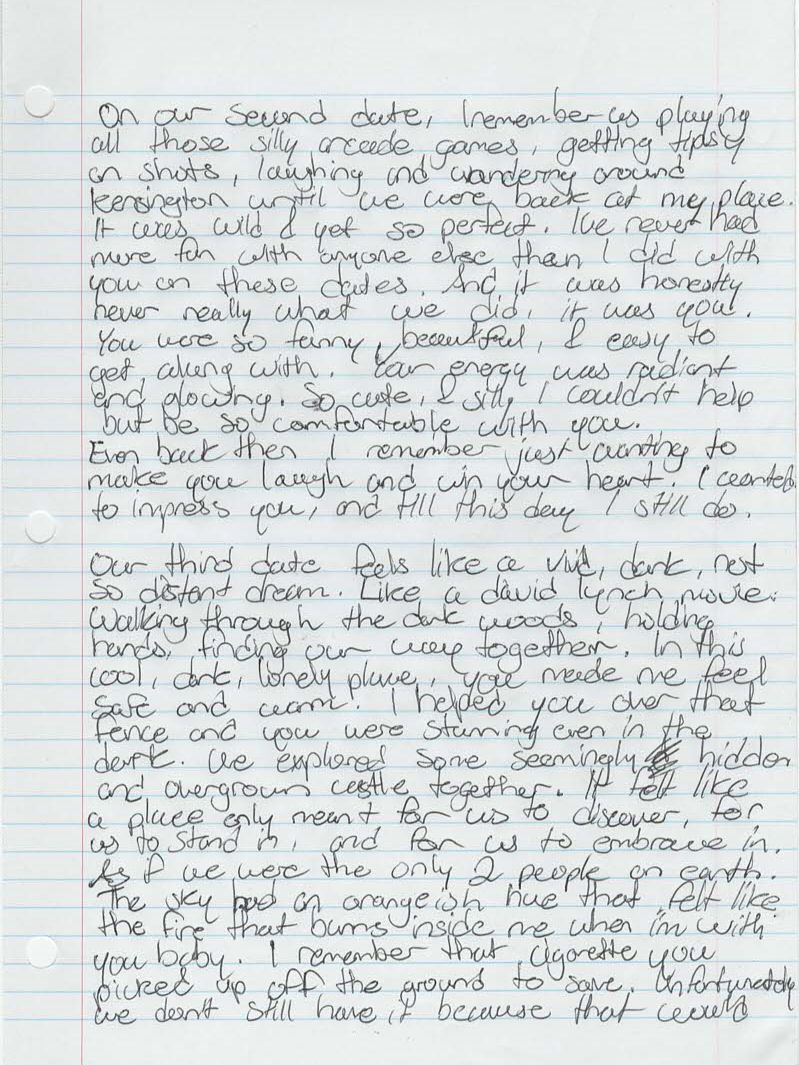 On our second date, I remember us playing
all those silly arcade games, getting tipsy
on shots, laughing and wandering around
kensington until we were back at my place.
It was wild & yet so perfect. I've never had
more fun with anyone else than I did with
you on these dates. And it was honestly
never really what we did, it was you.
You were so funny, beautiful, & easy to
get along with. Your energy was radiant
and glowing. So cute, & silly I couldn't help
but be so comfortable with you.
Even back then I remember just wanting to
make you laugh and win your heart. I wanted
to impress you, and till this day I still do.
Our third date feels like a vivid, dark, not
so distant dream. Like a david lynch movie.
Walking through the dark woods, holding
hands, finding our way together. In this
cool, dark, lonely place, you made me feel
safe and warm. I helped you over that
fence and you were stunning even in the
dark. We explored some seemingly hidden
and overgrown castle together. It felt like
a place only meant for us to discover, for
us to stand in, and for us to embrace in.
As if we were the only 2 people on earth.
The sky had an orangeish hue that felt like
the fire that burns inside me when im with
you baby. I remember that cigarette you
picked up off the ground to save. Unfortunately
we don't still have it because that would